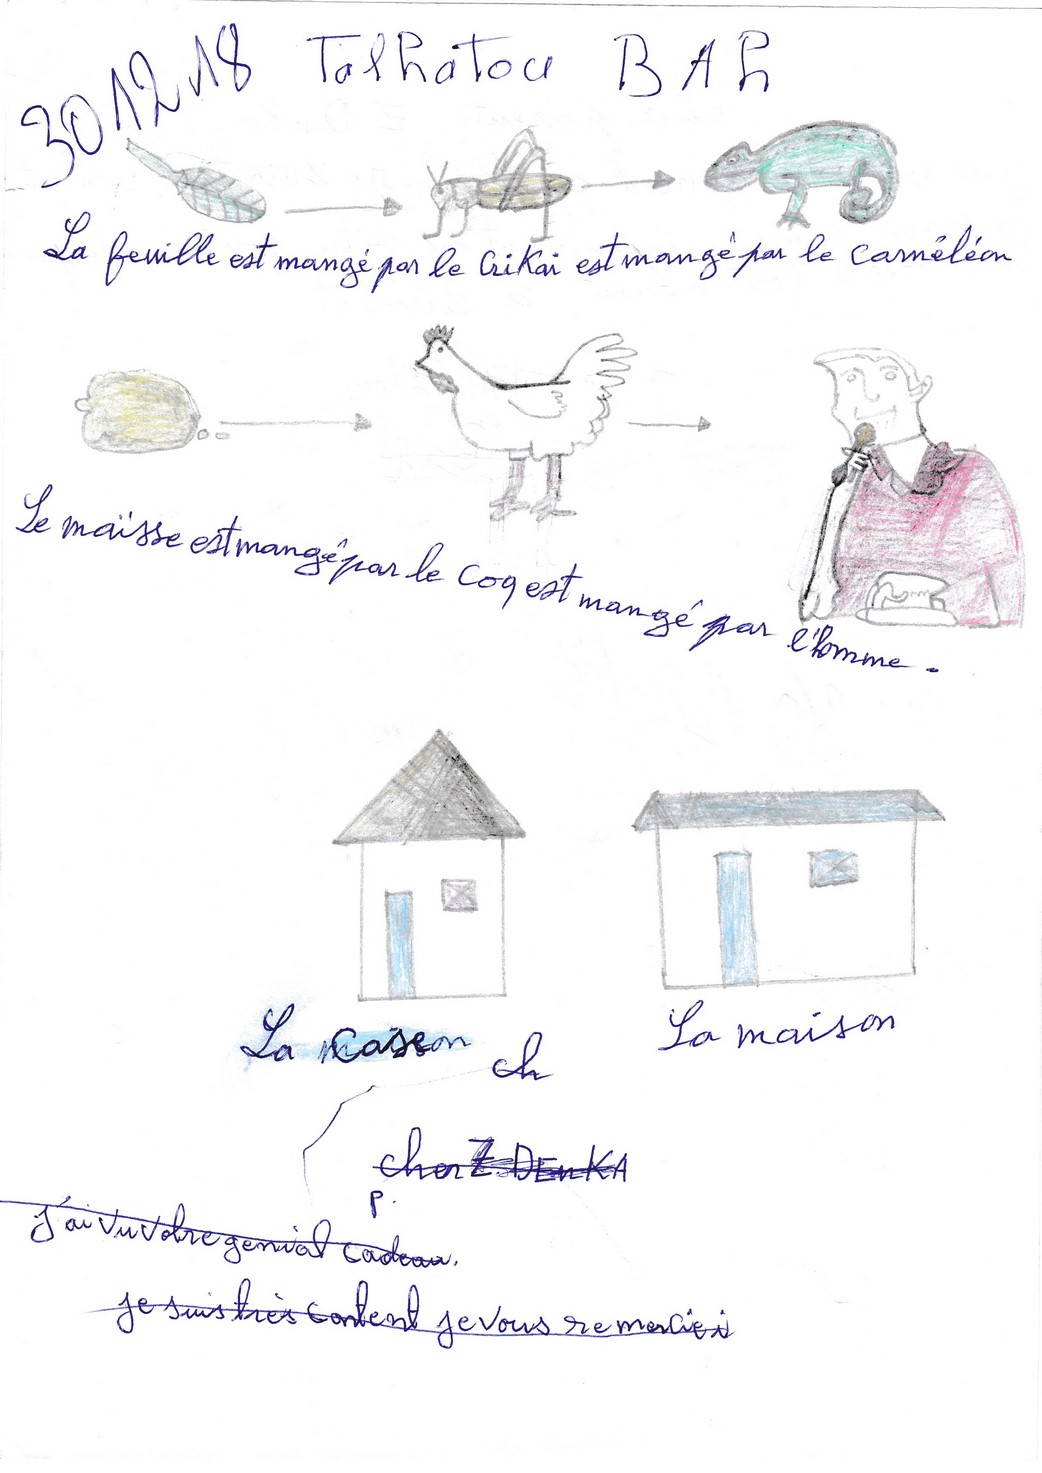 30 12 18
Talhatou BAh
La feuille est mangé par le Crikai est mangé par le caméléon
Le maïsse est mangé par le coq est mangé par l'homme.
La case
La maison
ch
cher Z DEnKA
P.
j'ai vu votre genial cadeau.
je suis très content je vous remerciei